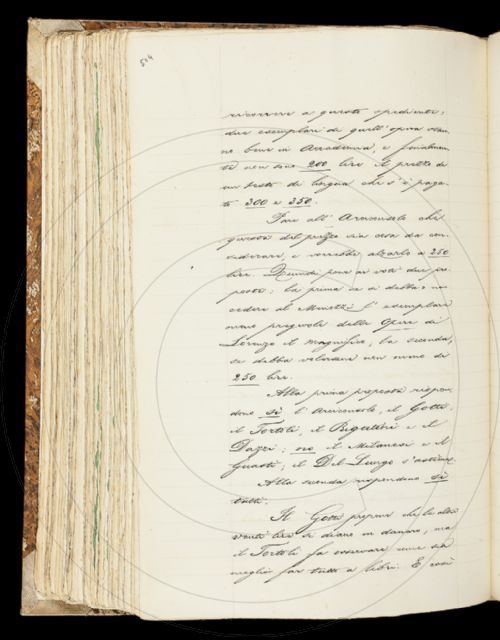 504
ricorrere a questo spediente;
due esemplari di quell'opera stan-
no bene in Accademia, e finalmen-
te non sono 200 lire il prezzo di
un testo di lingua che s'è paga-
to 300 e 350.
Pare all'Arciconsolo che
questa del prezzo sia cosa da con-
siderare, e vorrebbe alzarlo a 250
lire. Quindi pone ai voti due pro-
poste: la prima se si debba
cedere al l'esemplare
meno pregevole delle Opere di
Lorenzo il Magnifico; la seconda,
se debba valutarsi non meno di
250 lire.
Alla prima proposta rispon-
dono sì l'Arciconsolo, il Gotti,
il Tortoli, il Rigutini e il
Dazzi; no il Milanesi e il
Guasti; il Del Lungo s'astiene.
Alla seconda rispondono sì
tutti.
Il Gotti propone che le altre
venti lire si diano in danaro, ma
il Tortoli fa osservare come sia
meglio far tutto a libri. E così